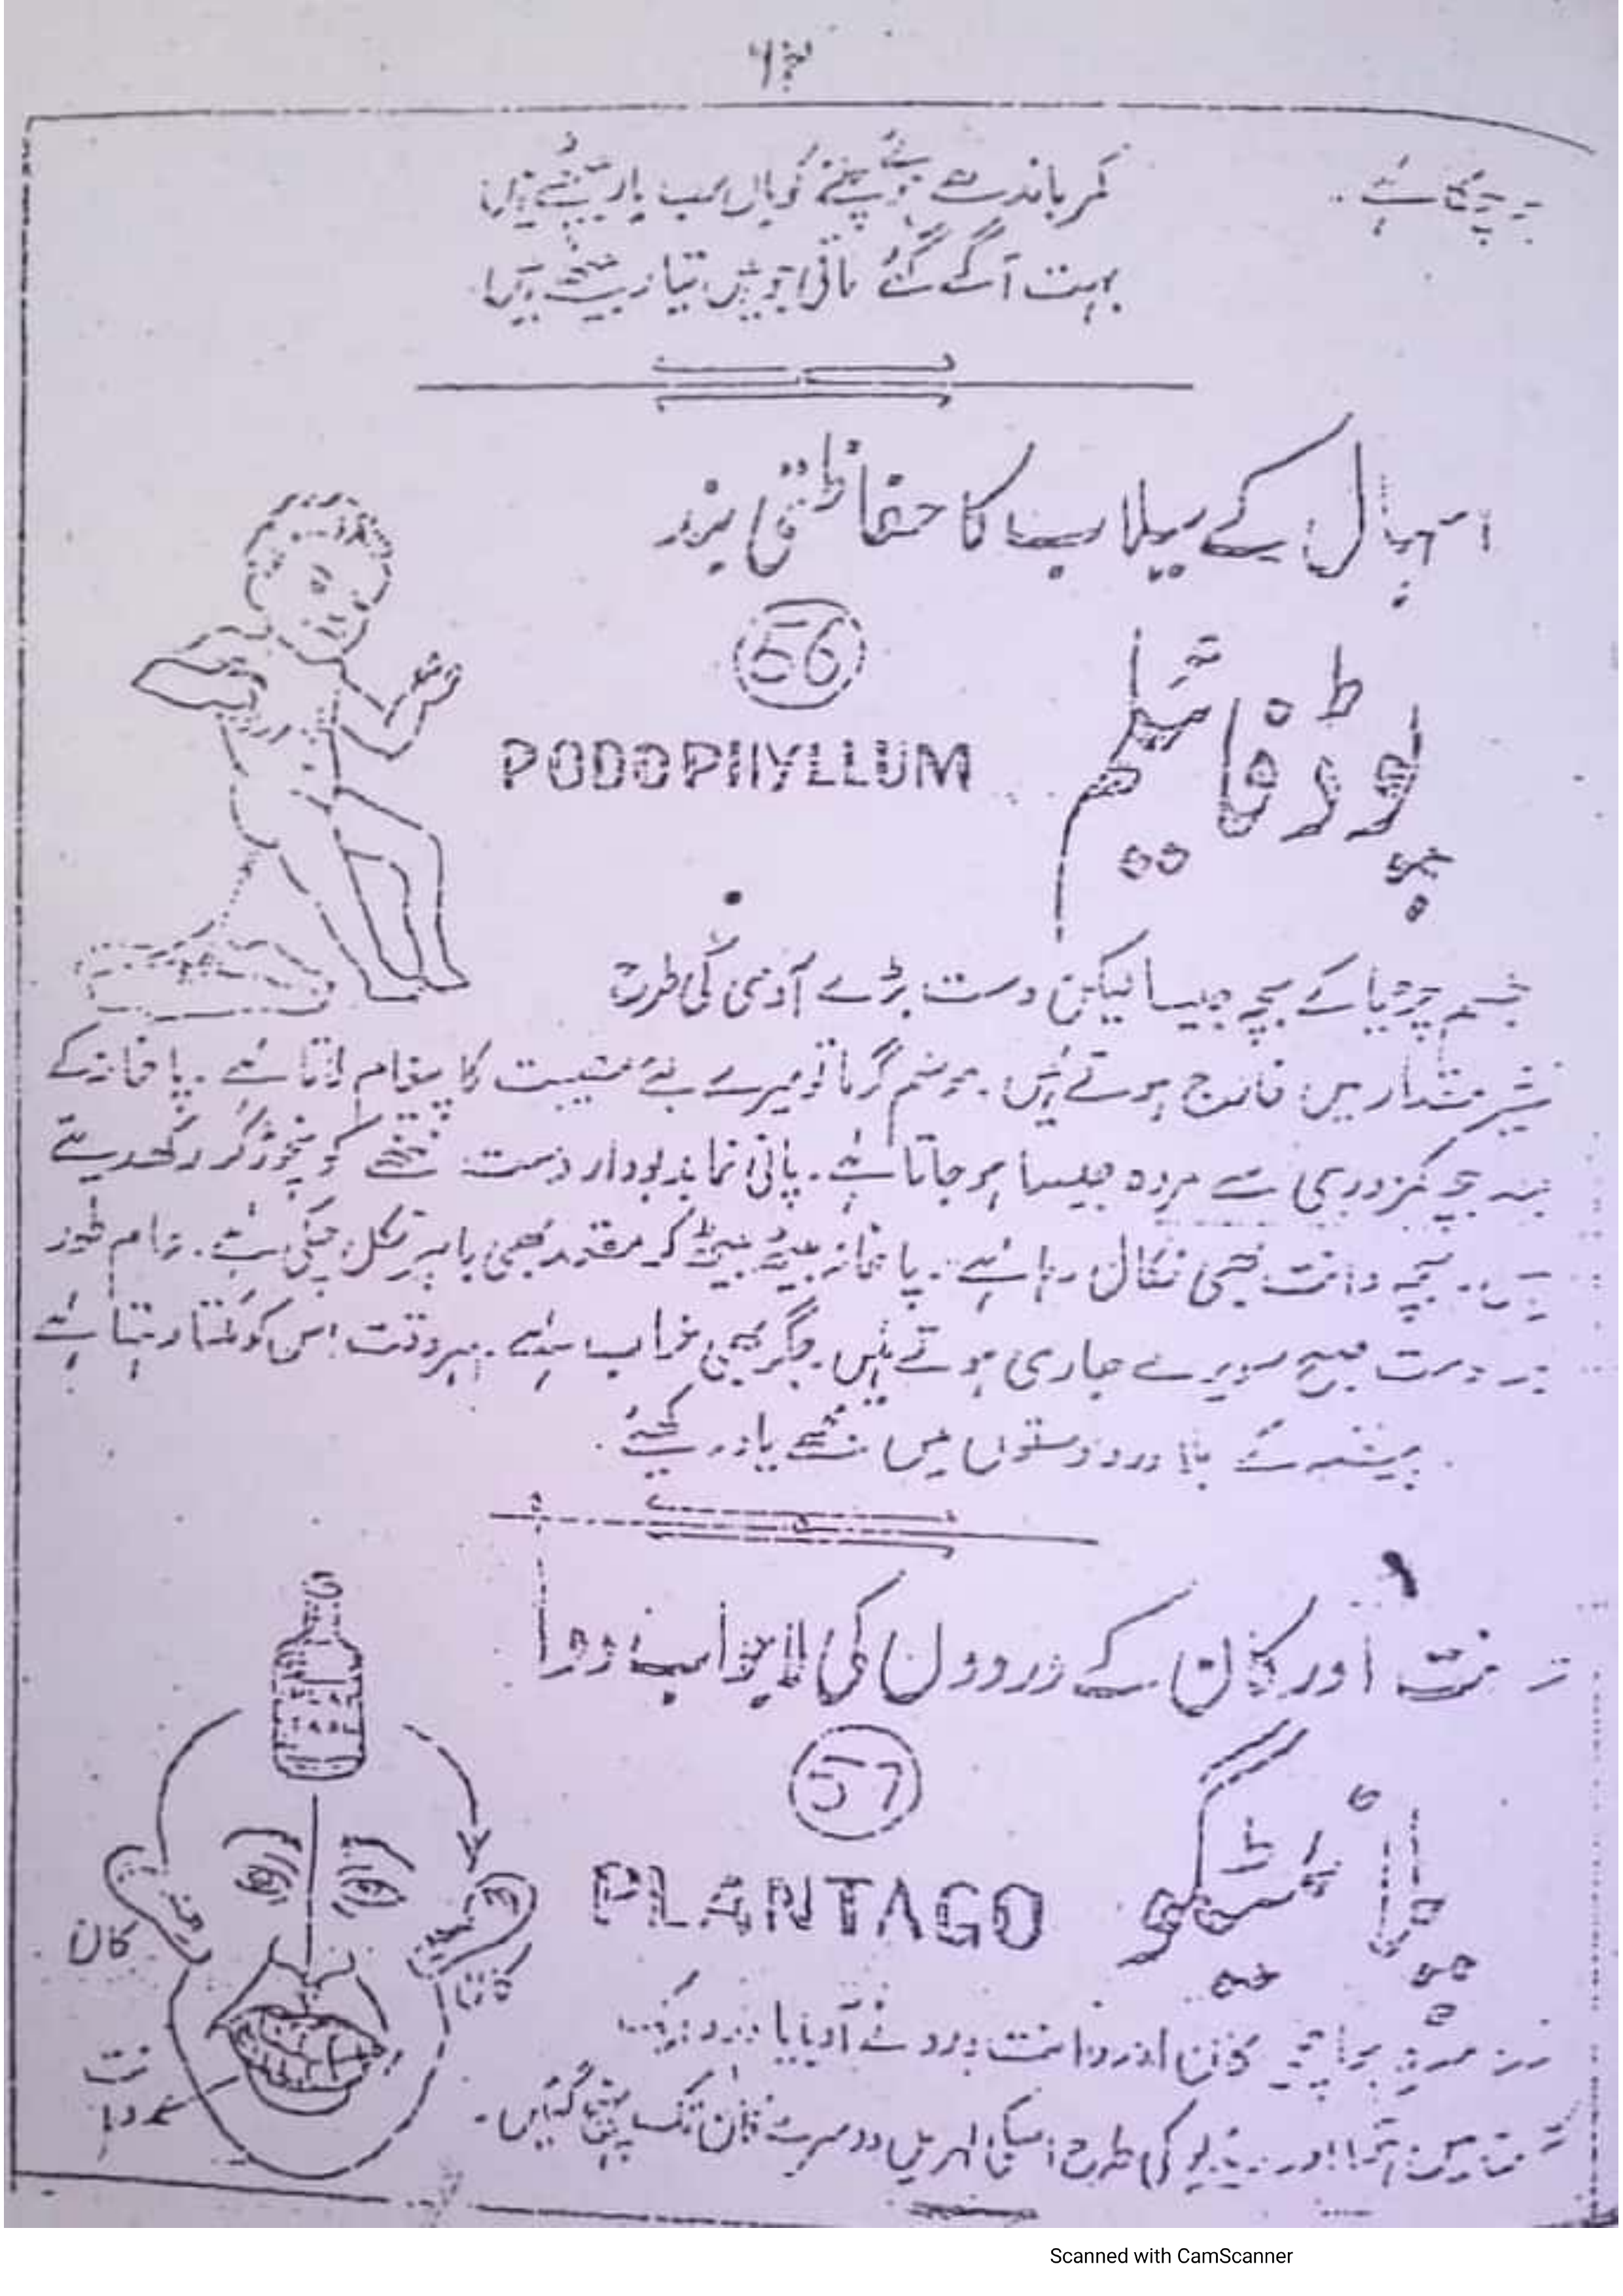 کمر باندھے ہوئے چلنے کو یاں سب یار بیٹھے ہیں
بہت آگے گئے باقی جو ہیں تیار بیٹھے ہیں
اسہال کے سیلاب کا حفاظتی بند
56
پوڈوفائیلم
PODOPHYLLUM
جسم چڑیا کے بچہ جیسا لیکن دست بڑے آدمی کی طرح
مقدار میں خارج ہوتے ہیں۔ موسم گرما تو میرے لئے مصیبت کا پیغام لاتا ہے۔ پاخانہ کے
بچہ کمزوری سے مردہ جیسا ہو جاتا ہے۔ پانی نما بدبودار دست ننھے کو نچوڑ کر رکھ دیتے
ہیں۔ بچہ دانت بھی نکال رہا ہے۔ پاخانہ بیٹھ بیٹھ کر مقعد بھی باہر نکل چکی ہے۔ عام طور
پر دست صبح سویرے جاری ہوتے ہیں۔ جگر بھی خراب ہے۔ ہر وقت اس کو ملتا رہتا ہے
ہیضہ کے بلا درد دستوں میں مجھے یاد رکھیئے۔
دانت اور کان کے دردوں کی لاجواب دوا
57
پلانٹیگو
PLANTAGO
کان
کان
دانت
درد
کان اور دانت درد نے آدبایا
میں اٹھا اور ریڈیو کی طرح اسکی لہریں دوسرے کان تک پہنچ گئیں۔
Scanned with CamScanner